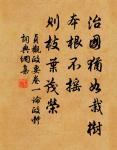 治國猶如栽樹
本根不搖
則枝葉茂榮
貞觀政要卷一論政體
詞典網集